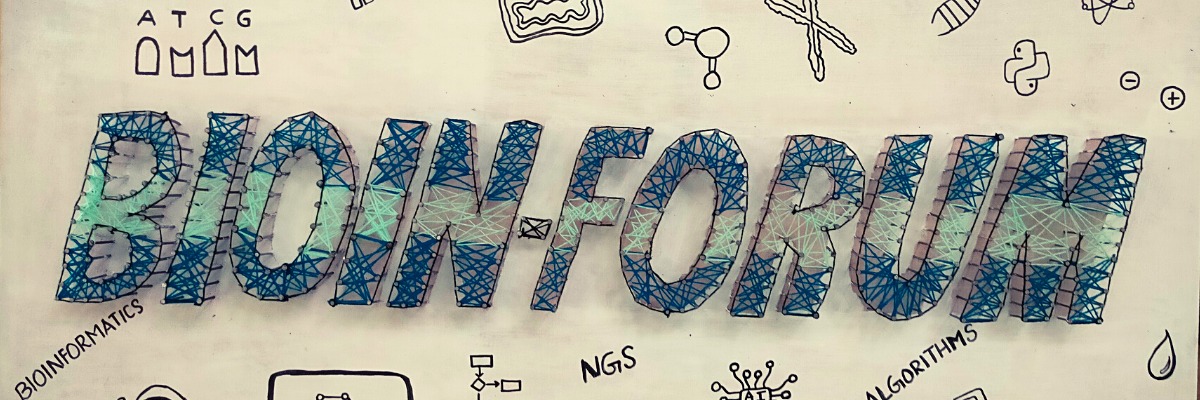 A T C G
BIOIN-FORUM
BIOINFORMATICS
NGS
ALGORITHMS
AI